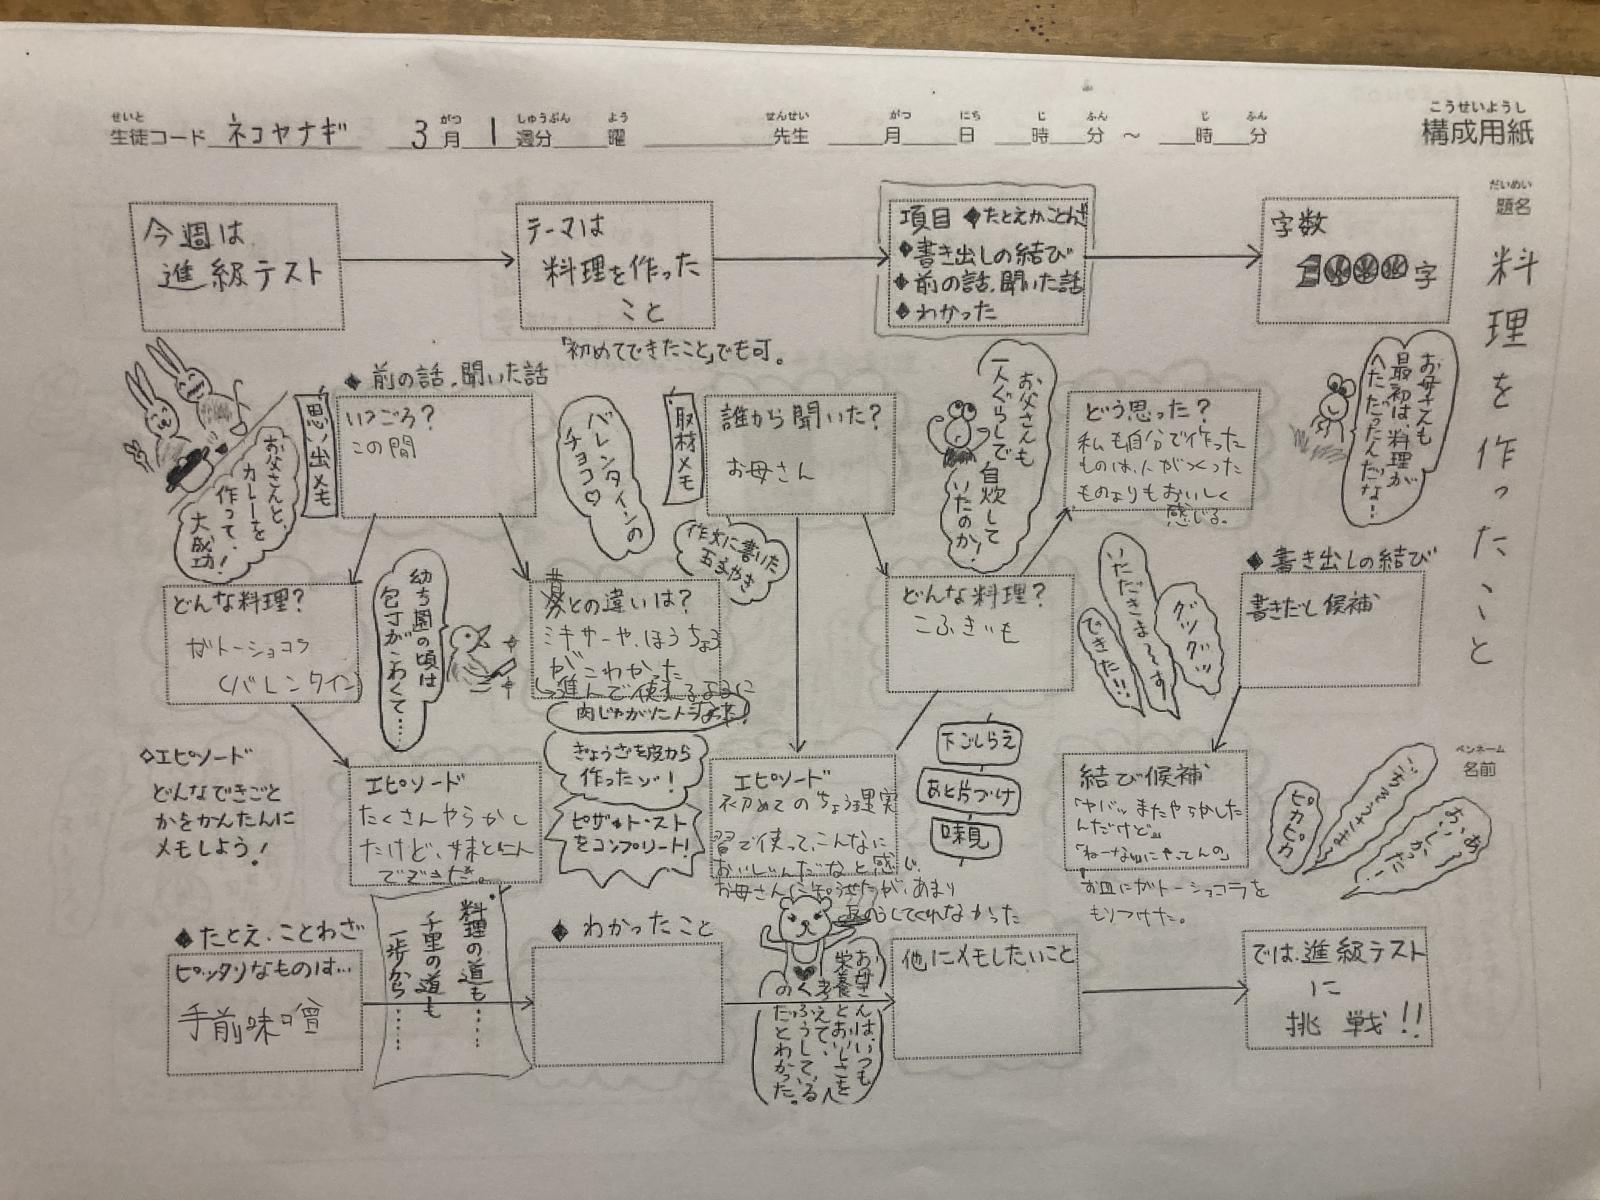 せいと
生徒コード ネコヤナギ
がつ
3月
しゅうぶん
1週分
よう
曜
せんせい
先生
がつ
月
にち
日
じ
時
ふん
分
～
じ
時
ふん
分
こうせいようし
構成用紙
だいめい
題名
料理を作ったこと
今週は
進級テスト
テーマは
料理を作った
こと
「初めてできたこと」でも可。
項目 ◆たとえかことわざ
◆書き出しの結び
◆前の話、聞いた話
◆わかった
字数
1000字
◆前の話、聞いた話
思い出メモ
いつごろ?
この間
お父さんと、
カレーを
作って、
大成功!
バレンタインの
チョコ♡
取材メモ
誰から聞いた?
お母さん
作文に書いた
お父さんも
一人ぐらしで
自炊して
いたのか!
どう思った?
私も自分で作った
ものは、人がつくった
ものよりもおいしく
感じる。
お母さんも
最初は、料理が
へただったんだな!
どんな料理?
ガトーショコラ
(バレンタイン)
幼ち園の頃は
包丁がこわくて……
昔との違いは?
ミキサーや、ほうちょう
がこわかった
→進んで使えるように
なった!
どんな料理?
こふきいも
いただきま〜す
できた!!
グツグツ
◆書き出しの結び
書きだし候補
◇エピソード
どんなできごと
かをかんたんに
メモしよう!
エピソード
たくさんやらかし
たけど、妹と
できた。
ぎょうざを皮から
作ったゾ!
ピザトースト
をコンプリート!
エピソード
初めてのちょう理実
習で使って、こんなに
おいしいんだなと感じ、
お母さんに知らせたが、あまり
反のうしてくれなかった
下ごしらえ
あと片づけ
味見
結び候補
「ヤバッまたやらかした
んだけど」
「ねーなにやってんの」
お皿にガトーショコラを
もりつけた。
ペンネーム
名前
ピカピカ
ごちそうさま
あ〜
おいしかった!
◆たとえ、ことわざ
ピッタリなものは…
手前味噌
料理の道も……
千里の道も
一歩から……
◆わかったこと
お母さんは、いつも
栄養とおいしさを
考えて、
くふうしている人
なのだとわかった。
他にメモしたいこと
では、進級テスト
に
挑戦!!